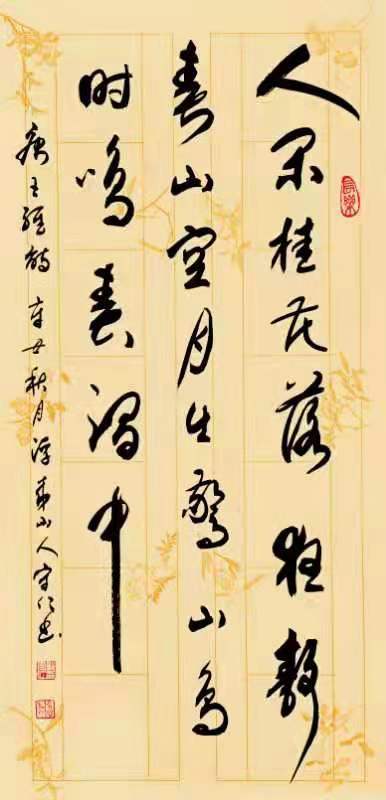 長樂
人闲桂花落夜静
春山空月出惊山鸟
时鸣春涧中
唐王维诗 辛丑秋月浮山人守仁书